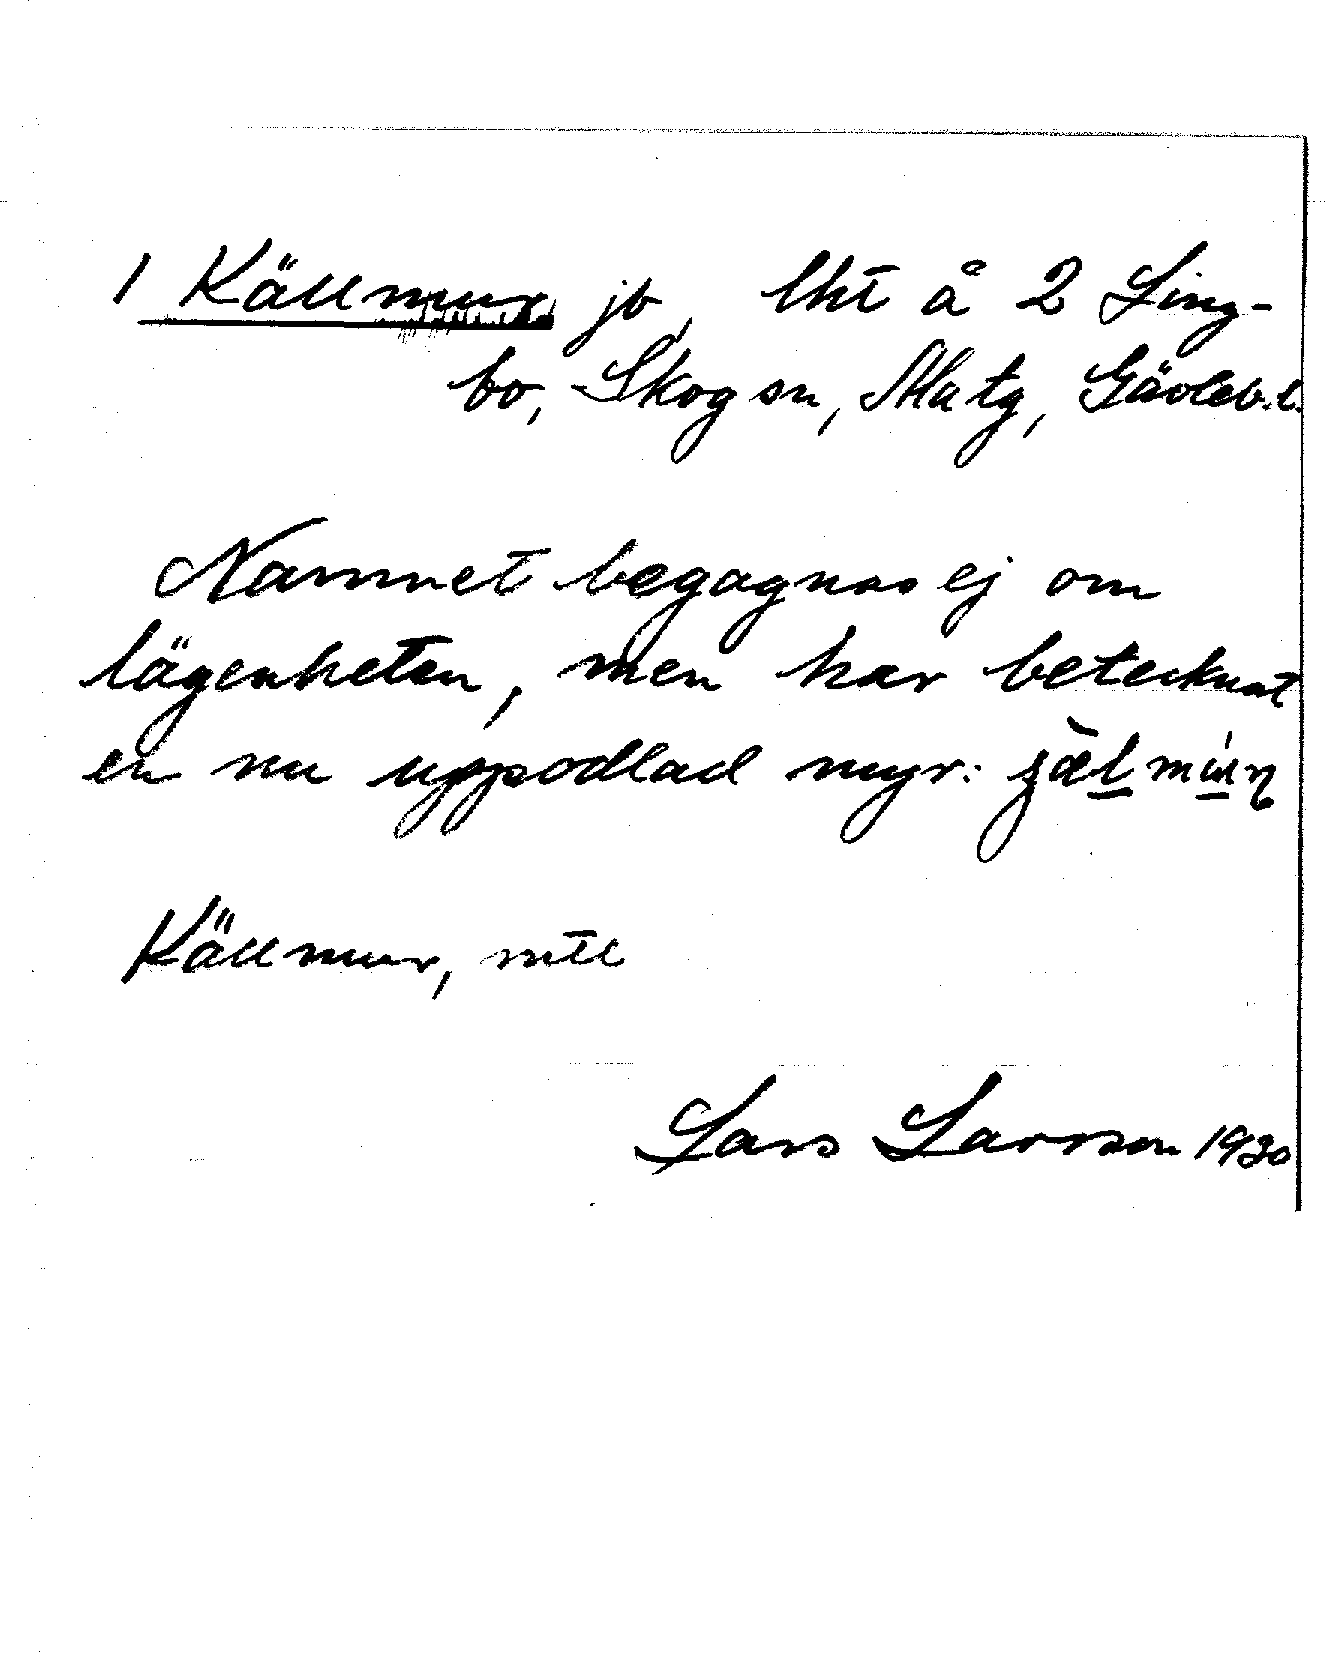 1 Källmur jb, lht å 2 Ling-
bo, Skogson, Matg, Gävleb.l.
Namnet begagnas ej om
lägenheten, men har betecknat
en nu uppodlad myr:
Källmur, mtl
Lars Larsson 1930